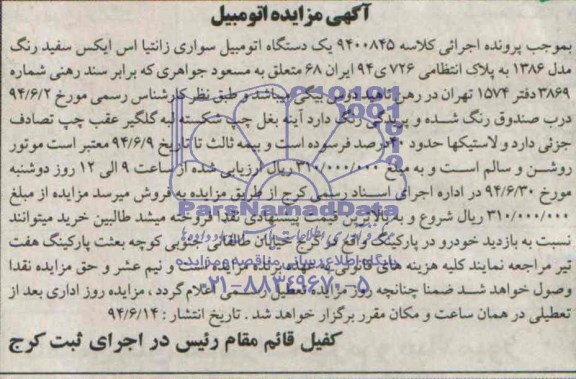 آگهی مزایده اتومبیل
بموجب پرونده اجرائی کلاسه ۹۴۰۰۸۴۵ یک دستگاه اتومبیل سواری زانتیا اس ایکس سفید رنگ
مدل ۱۳۸۶ به پلاک انتظامی ۷۲۶ ی۹۴ ایران ۶۸ متعلق به مسعود جواهری که برابر سند رهنی شماره
۳۸۶۹ دفتر ۱۵۷۴ تهران در رهن بیگی میباشد و طبق نظر کارشناس رسمی مورخ ۹۴/۶/۲
درب صندوق رنگ شده و پریدگی رنگ دارد آینه بغل چپ شکسته لبه گلگیر عقب چپ تصادف
جزئی دارد و لاستیکها حدود ۴۰درصد فرسوده است و بیمه ثالث تا تاریخ ۹۴/۶/۹ معتبر است موتور
روشن و سالم است و به مبلغ ۳۱۰/۰۰۰/۰۰۰ ریال ارزیابی شده از ساعت ۹ الی ۱۲ روز دوشنبه
مورخ ۹۴/۶/۳۰ در اداره اجرای اسناد رسمی کرج از طریق مزایده به فروش میرسد مزایده از مبلغ
۳۱۰/۰۰۰/۰۰۰ ریال شروع و به بالاترین قیمت پیشنهادی نقدا فروخته میشد طالبین خرید میتوانند
نسبت به بازدید خودرو در پارکینگ واقع در کرج خیابان طالقانی جنوبی کوچه بعثت پارکینگ هفت
تیر مراجعه نمایند کلیه هزینه های قانونی به عهده برنده مزایده است و نیم عشر و حق مزایده نقدا
وصول خواهد شد ضمنا چنانچه روز مزایده تعطیل رسمی اعلام گردد ، مزایده روز اداری بعد از
تعطیلی در همان ساعت و مکان مقرر برگزار خواهد شد . تاریخ انتشار : ۹۴/۶/۱۴
کفیل قائم مقام رئیس در اجرای ثبت کرج
ParsNamadData
پایگاه اطلاع رسانی مناقصه و مزایده
۰۲۱-۸۸۳۴۹۶۷۰-۵